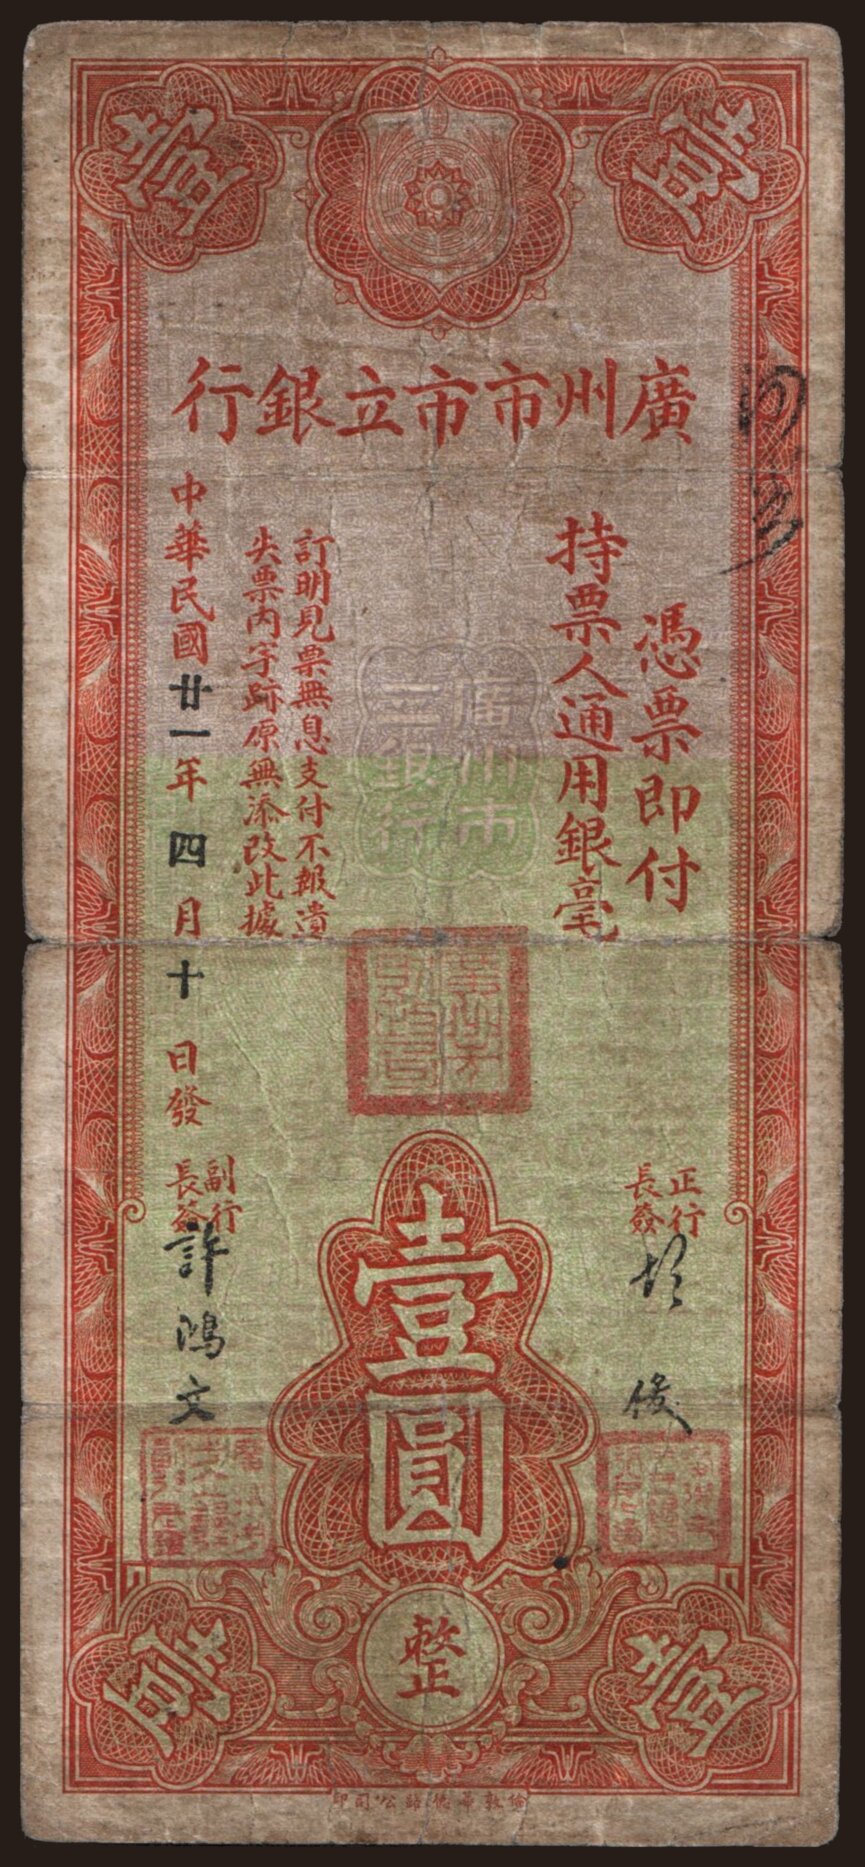 壹
壹
廣州市市立銀行
憑票即付
持票人通用銀毫
廣州市
立銀行
壹圓
整
訂明見票無息支付不報遺
失票內字跡原無添改此據
中華民國廿一年四月十日發
正行
長簽
副行
長簽
許鴻文
壹
壹
倫敦華德路公司印